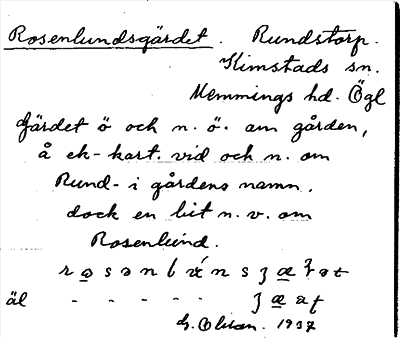 Rosenlundsgärdet. Rundstorp.
Kimstads sn.
Memmings hd. Ögl
Gärdet ö och n. ö. om gården,
å ek-kart. vid och n. om
Rund- i gårdens namn,
dock en bit n. v. om
Rosenlund.
äl
G. Olson. 1937